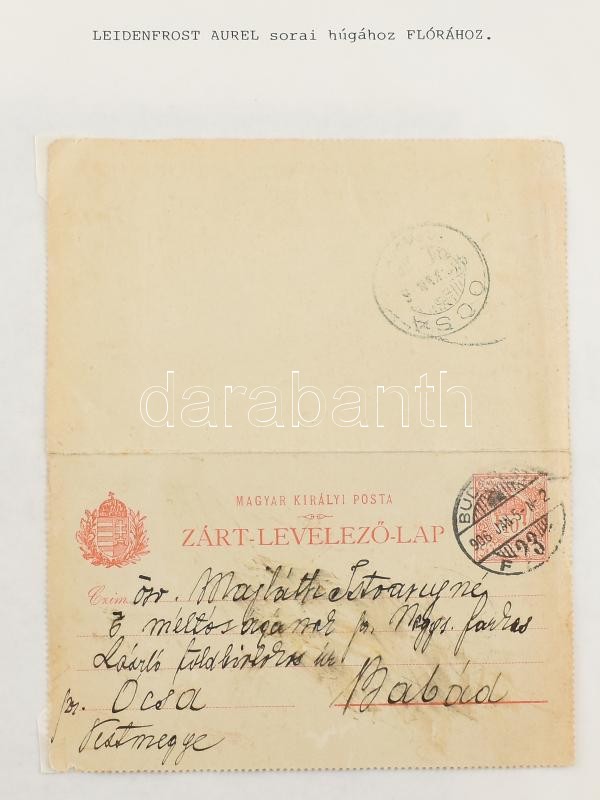 LEIDENFROST AUREL sorai húgához FLÓRÁHOZ.
darabanth
MAGYAR KIRÁLYI POSTA
ZÁRT-LEVELEZŐ-LAP
Czím: özv. Majláth Istvanyné
Ő méltóságának pr. Nagys. farkas
László földbirtokos úr
pr. Ócsa Babád
Pestmegye
906 JAN. 5
23
F